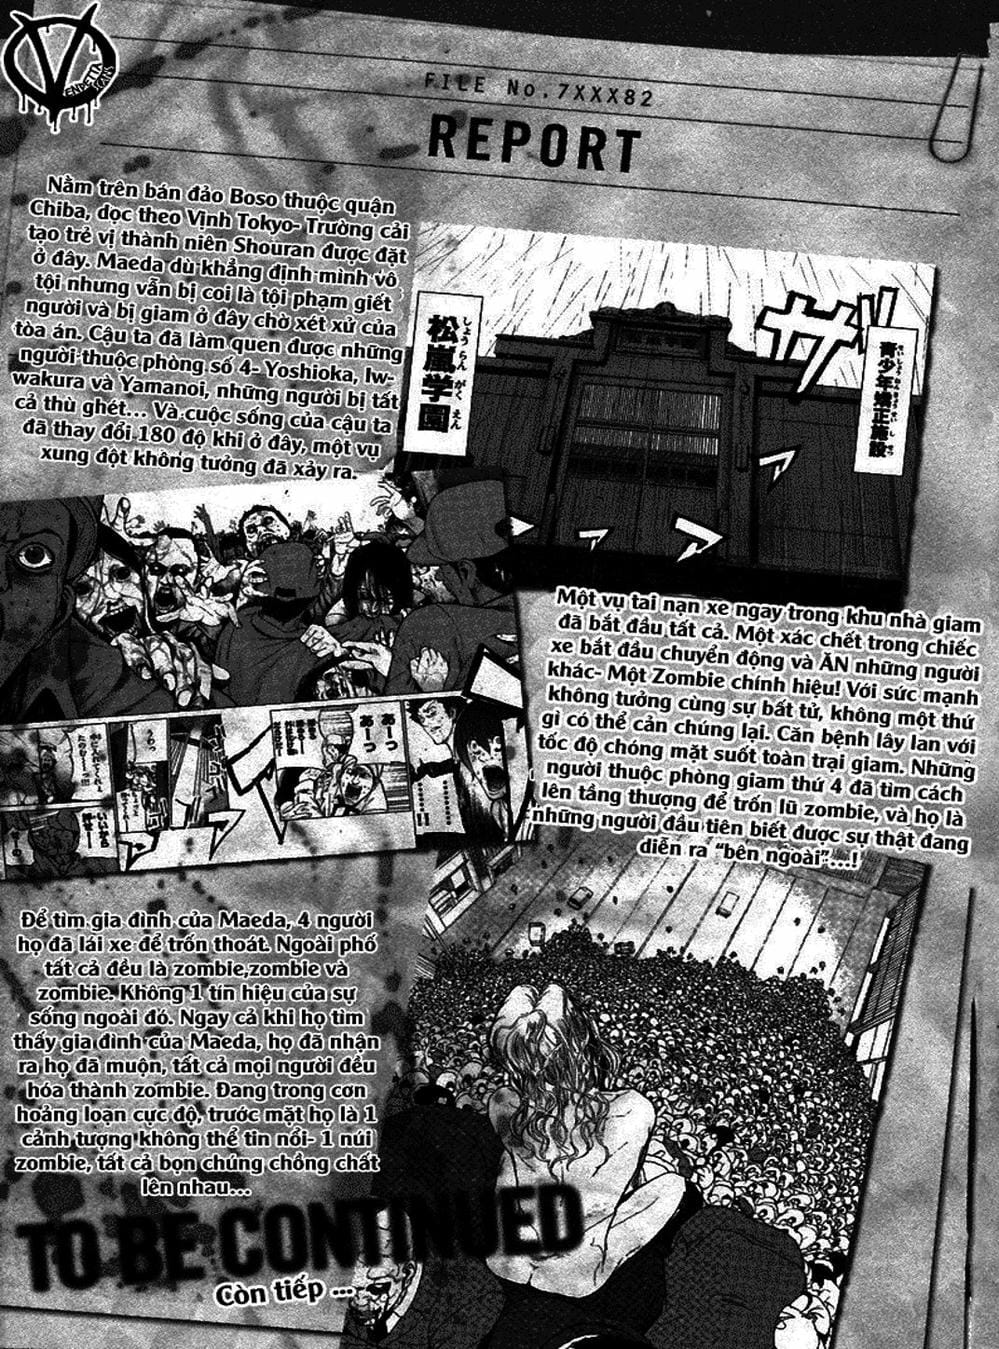 V
ENDETTA
SCANS
FILE No.7XXX82
REPORT
Nằm trên bán đảo Boso thuộc quận
Chiba, dọc theo Vịnh Tokyo- Trường cải
tạo trẻ vị thành niên Shouran được đặt
ở đây. Maeda dù khẳng định mình vô
tội nhưng vẫn bị coi là tội phạm giết
người và bị giam ở đây chờ xét xử của
tòa án. Cậu ta đã làm quen được những
người thuộc phòng số 4- Yoshioka, Iw-
wakura và Yamanoi, những người bị tất
cả thù ghét... Và cuộc sống của cậu ta
đã thay đổi 180 độ khi ở đây, một vụ
xung đột không tưởng đã xảy ra.
青少年矯正施設
せいしょうねんきょうせいしせつ
ザザ
松嵐学園
しょうらんがくえん
Một vụ tai nạn xe ngay trong khu nhà giam
đã bắt đầu tất cả. Một xác chết trong chiếc
xe bắt đầu chuyển động và ĂN những người
khác- Một Zombie chính hiệu! Với sức mạnh
không tưởng cùng sự bất tử, không một thứ
gì có thể cản chúng lại. Căn bệnh lây lan với
tốc độ chóng mặt suốt toàn trại giam. Những
người thuộc phòng giam thứ 4 đã tìm cách
lên tầng thượng để trốn lũ zombie, và họ là
những người đầu tiên biết được sự thật đang
diễn ra “bên ngoài”....!
あーっ
あーっ
うわっ
Để tìm gia đình của Maeda, 4 người
họ đã lái xe để trốn thoát. Ngoài phố
tất cả đều là zombie,zombie và
zombie. Không 1 tín hiệu của sự
sống ngoài đó. Ngay cả khi họ tìm
thấy gia đình của Maeda, họ đã nhận
ra họ đã muộn, tất cả mọi người đều
hóa thành zombie. Đang trong cơn
hoảng loạn cực độ, trước mặt họ là 1
cảnh tượng không thể tin nổi- 1 núi
zombie, tất cả bọn chúng chồng chất
lên nhau...
TO BE CONTINUED
Còn tiếp ...